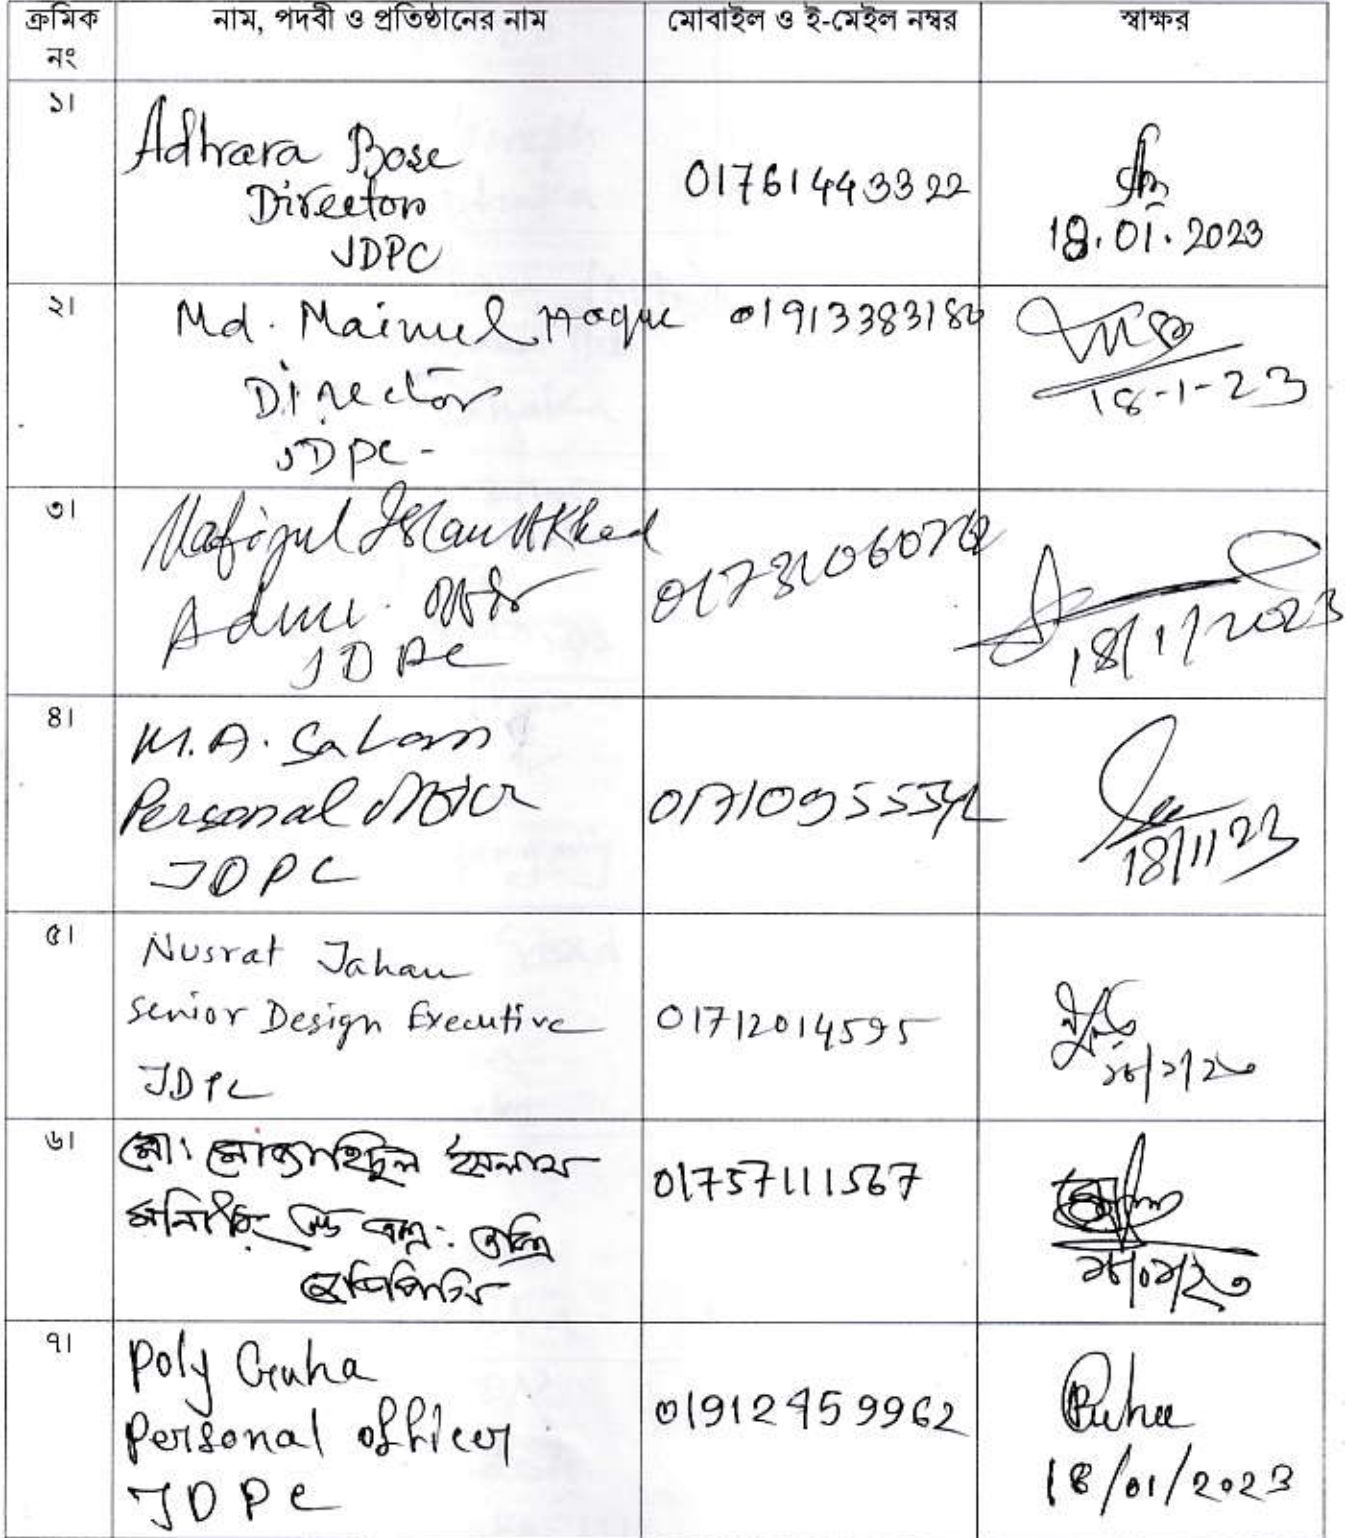 ক্রমিক নং নাম, পদবী ও প্রতিষ্ঠানের নাম মোবাইল ও ই-মেইল নম্বর স্বাক্ষর
১।
Adhara Bose
Director
JDPC
01761443322
18.01.2023
২।
Md. Mainul Hoque
Director
JDPC -
01913383180
18-1-23
৩।
Mafizul Islam
JDPC
18/1/2023
৪।
M.A. Salam
Personal officer
JDPC
18/1/23
৫।
Nusrat Jahan
Senior Design Executive
JDPC
01712014595
১৮/১/২৩
৬।
মো: ইসলাম
জেডিপিসি
01757111567
১৮/০১/২৩
৭।
Poly Guha
Personal officer
JDPC
01912459962
Guha
18/01/2023